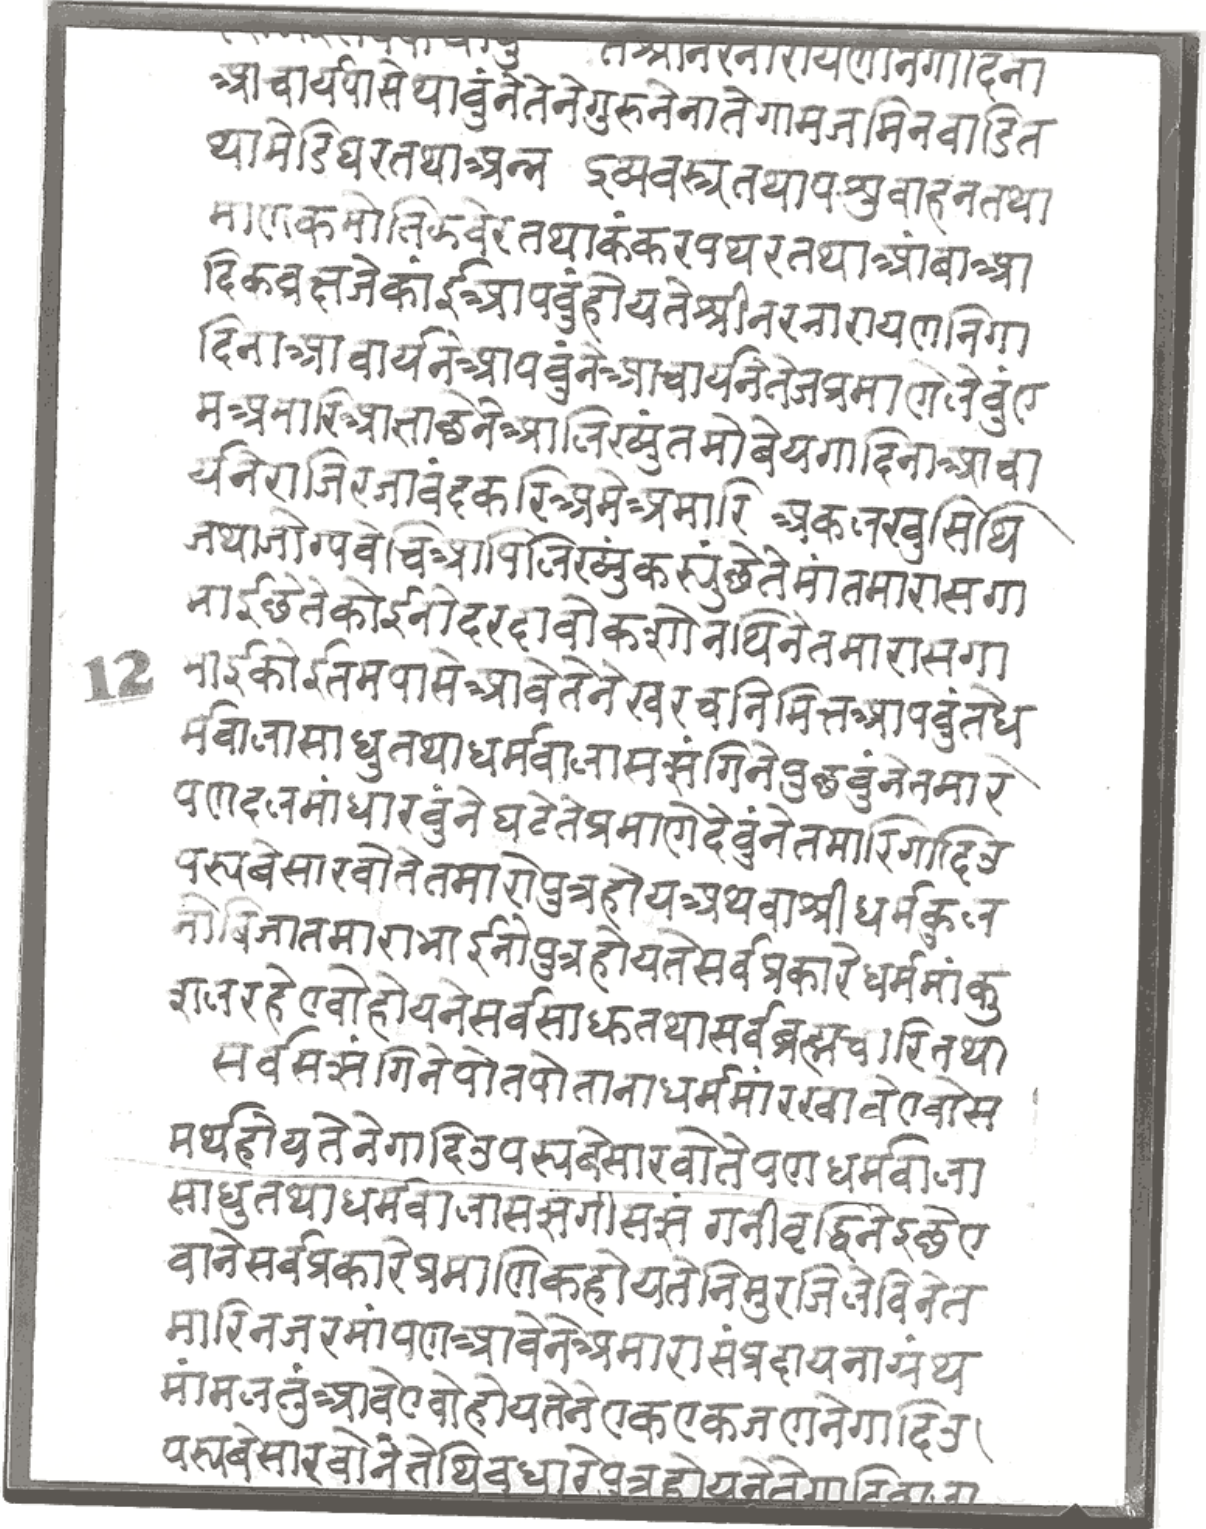 तश्रीनरनारायणनिगादिना
श्राचार्यपासेथावुंनेतेनेगुरुनेनातेगामजमिनवाडित
थामेडिघरतथाश्रन्न द्रव्यवस्त्रतथापश्रुवाहनतथा
माणकमोतिझवेरतथाकंकरपथरतथाश्रांबाश्रा
दिकव्रक्षजेकांईश्रापवुंहोयतेश्रीनरनारायणनिगा
दिनाश्राचार्यनेश्रापवुंनेश्राचार्यनेतेजप्रमाणेलेवुंए
मश्रमारिश्राज्ञाछेनेश्रालिख्युंतमोबेयगादिनाश्राचा
र्यनेराजिरजावंदकरिश्रमेश्रमारि श्रकलखुसिथि
जथाजोग्पवेचिश्रापिलिख्युंकर्युंछेतेमांतमारासगा
भाईछेतेकोईनोदरदावोकशोनथिनेतमारासगा
भाईकोईतमपासेश्रावेतेनेखरचनिमित्तश्रापवुंतेध
र्मवालासाधुतथाधर्मवालासत्संगिनेपुछवुंनेतमारे
पणदलमांधारवुंने घटेतेप्रमाणेदेवुंनेतमारिगादिउ
परयबेसारवोतेतमारोपुत्रहोयश्रथवाश्रीधर्मकुल
नोबिजातमाराभाईनोपुत्रहोयतेसर्वप्रकारेधर्ममांकु
शलरहेएवोहोयनेसर्वसाधुतथासर्वब्रह्मचारितथा
सर्वसत्संगिनेपोतपोतानाधर्ममांरखावेएवोस
मर्थहोयतेनेगादिउपरयबेसारवोतेपणधर्मवाला
साधुतथाधर्मवालासत्संगीसत्सं गनीवृद्धिनेइछेए
वानेसर्वप्रकारेप्रमाणिकहोयतेनिमुरजिलेविनेत
मारिनजरमांपणश्रावेनेश्रमारासंप्रदायनाग्रंथ
मांमलतुंश्रावेएवोहोयतेनेएकएकजणनेगादिउ
परयबेसारवोनेतेथिवधारेपुत्रहोयतेनेगादिवाला